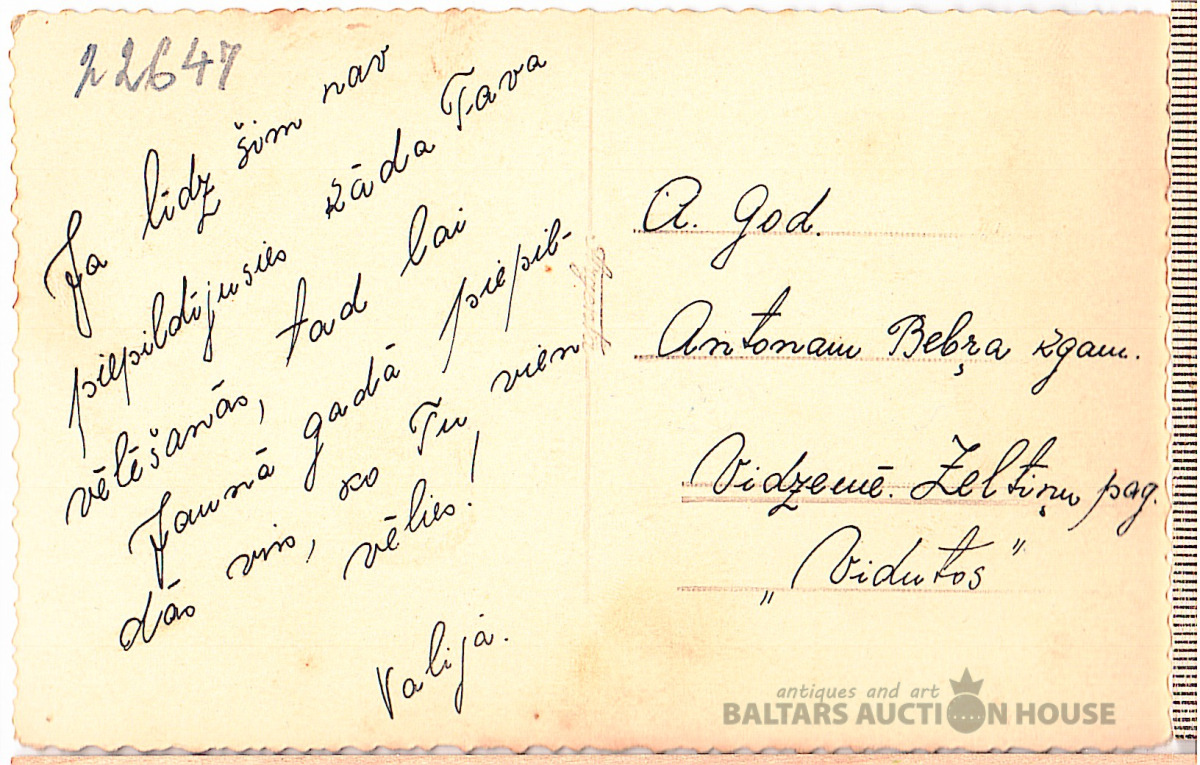 22647
Ja līdz šim nav
piepildījusies kāda Tava
vēlēšanās, tad lai
Jaunā gadā piepil-
dās viss, ko Tu vien
vēlies!
Valija.
A. God.
Antonam Bebŗa kgam.
Vidzemē. Zeltiņu pag.
„Vidutos"
antiques and art
BALTARS AUCTION HOUSE